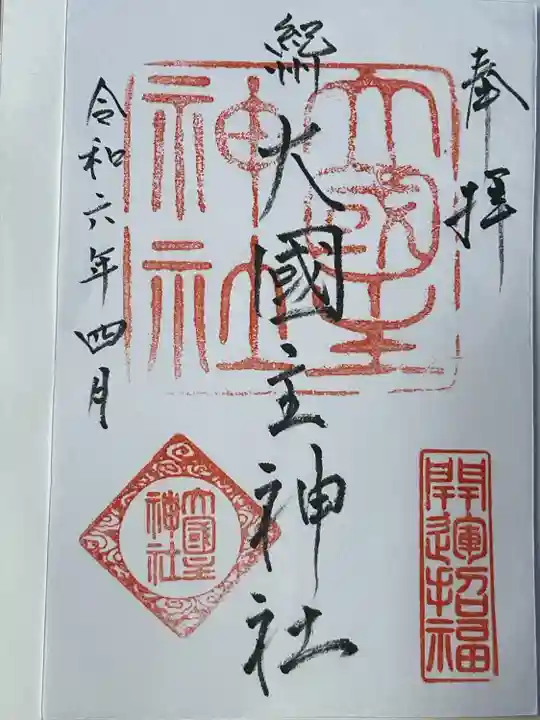 奉拝
総大國主神社
令和六年四月
大國主
神社
開運招福
大國主
神社